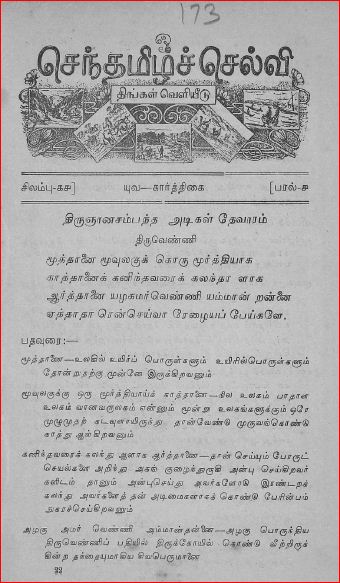 173
செந்தமிழ்ச் செல்வி
திங்கள் வெளியீடு
சிலம்பு-கச] யுவ—கார்த்திகை [பரல்-ச
திருஞானசம்பந்த அடிகள் தேவாரம்
திருவெண்ணி
மூத்தானை மூவுலகுக் கொரு மூர்த்தியாக
காத்தானைக் கனிந்தவரைக் கலந்தா ளாக
ஆர்த்தானை யழகமர்வெண்ணி யம்மான் றன்னை
ஏத்தாதா ரென்செய்வா ரேழையப் பேய்களே.
பதவுரை:—
மூத்தானை—உலகில் உயிர்ப் பொருள்களும் உயிரில்பொருள்களும்
தோன்றுதற்கு முன்னே இருக்கிறவனும்
மூவுலகுக்கு ஒரு மூர்த்தியாய்க் காத்தானை—நில உலகம் பாதாள
உலகம் வானவருலகம் என்னும் மூன்று உலகங்களுக்கும் ஒரே
முழுமுதற் கடவுளாயிருந்து தான்வேண்டு முருவங்கொண்டு
காத்து ஆள்கிறவனும்
கனிந்தவரைக் கலந்து ஆளாக ஆர்த்தானை—தான் செய்யும் பேரருட்
செயல்களை அறிந்து அகங் குழைந்துருகி அன்பு செய்கிறவர்
களிடம் தானும் அன்புசெய்து அவர்களோடு இரண்டறக்
கலந்து அவர்களைத் தன் அடிமைகளாகக் கொண்டு பேரின்பம்
அகரச்செய்கிறவனும்
அழகு அமர் வெண்ணி அம்மான்தன்னை—அழகு பொருந்திய
திருவெண்ணிப் பதியில் திருக்கோயில் கொண்டு வீற்றிருக்
கின்ற தந்தையுமாகிய சிவபெருமானை